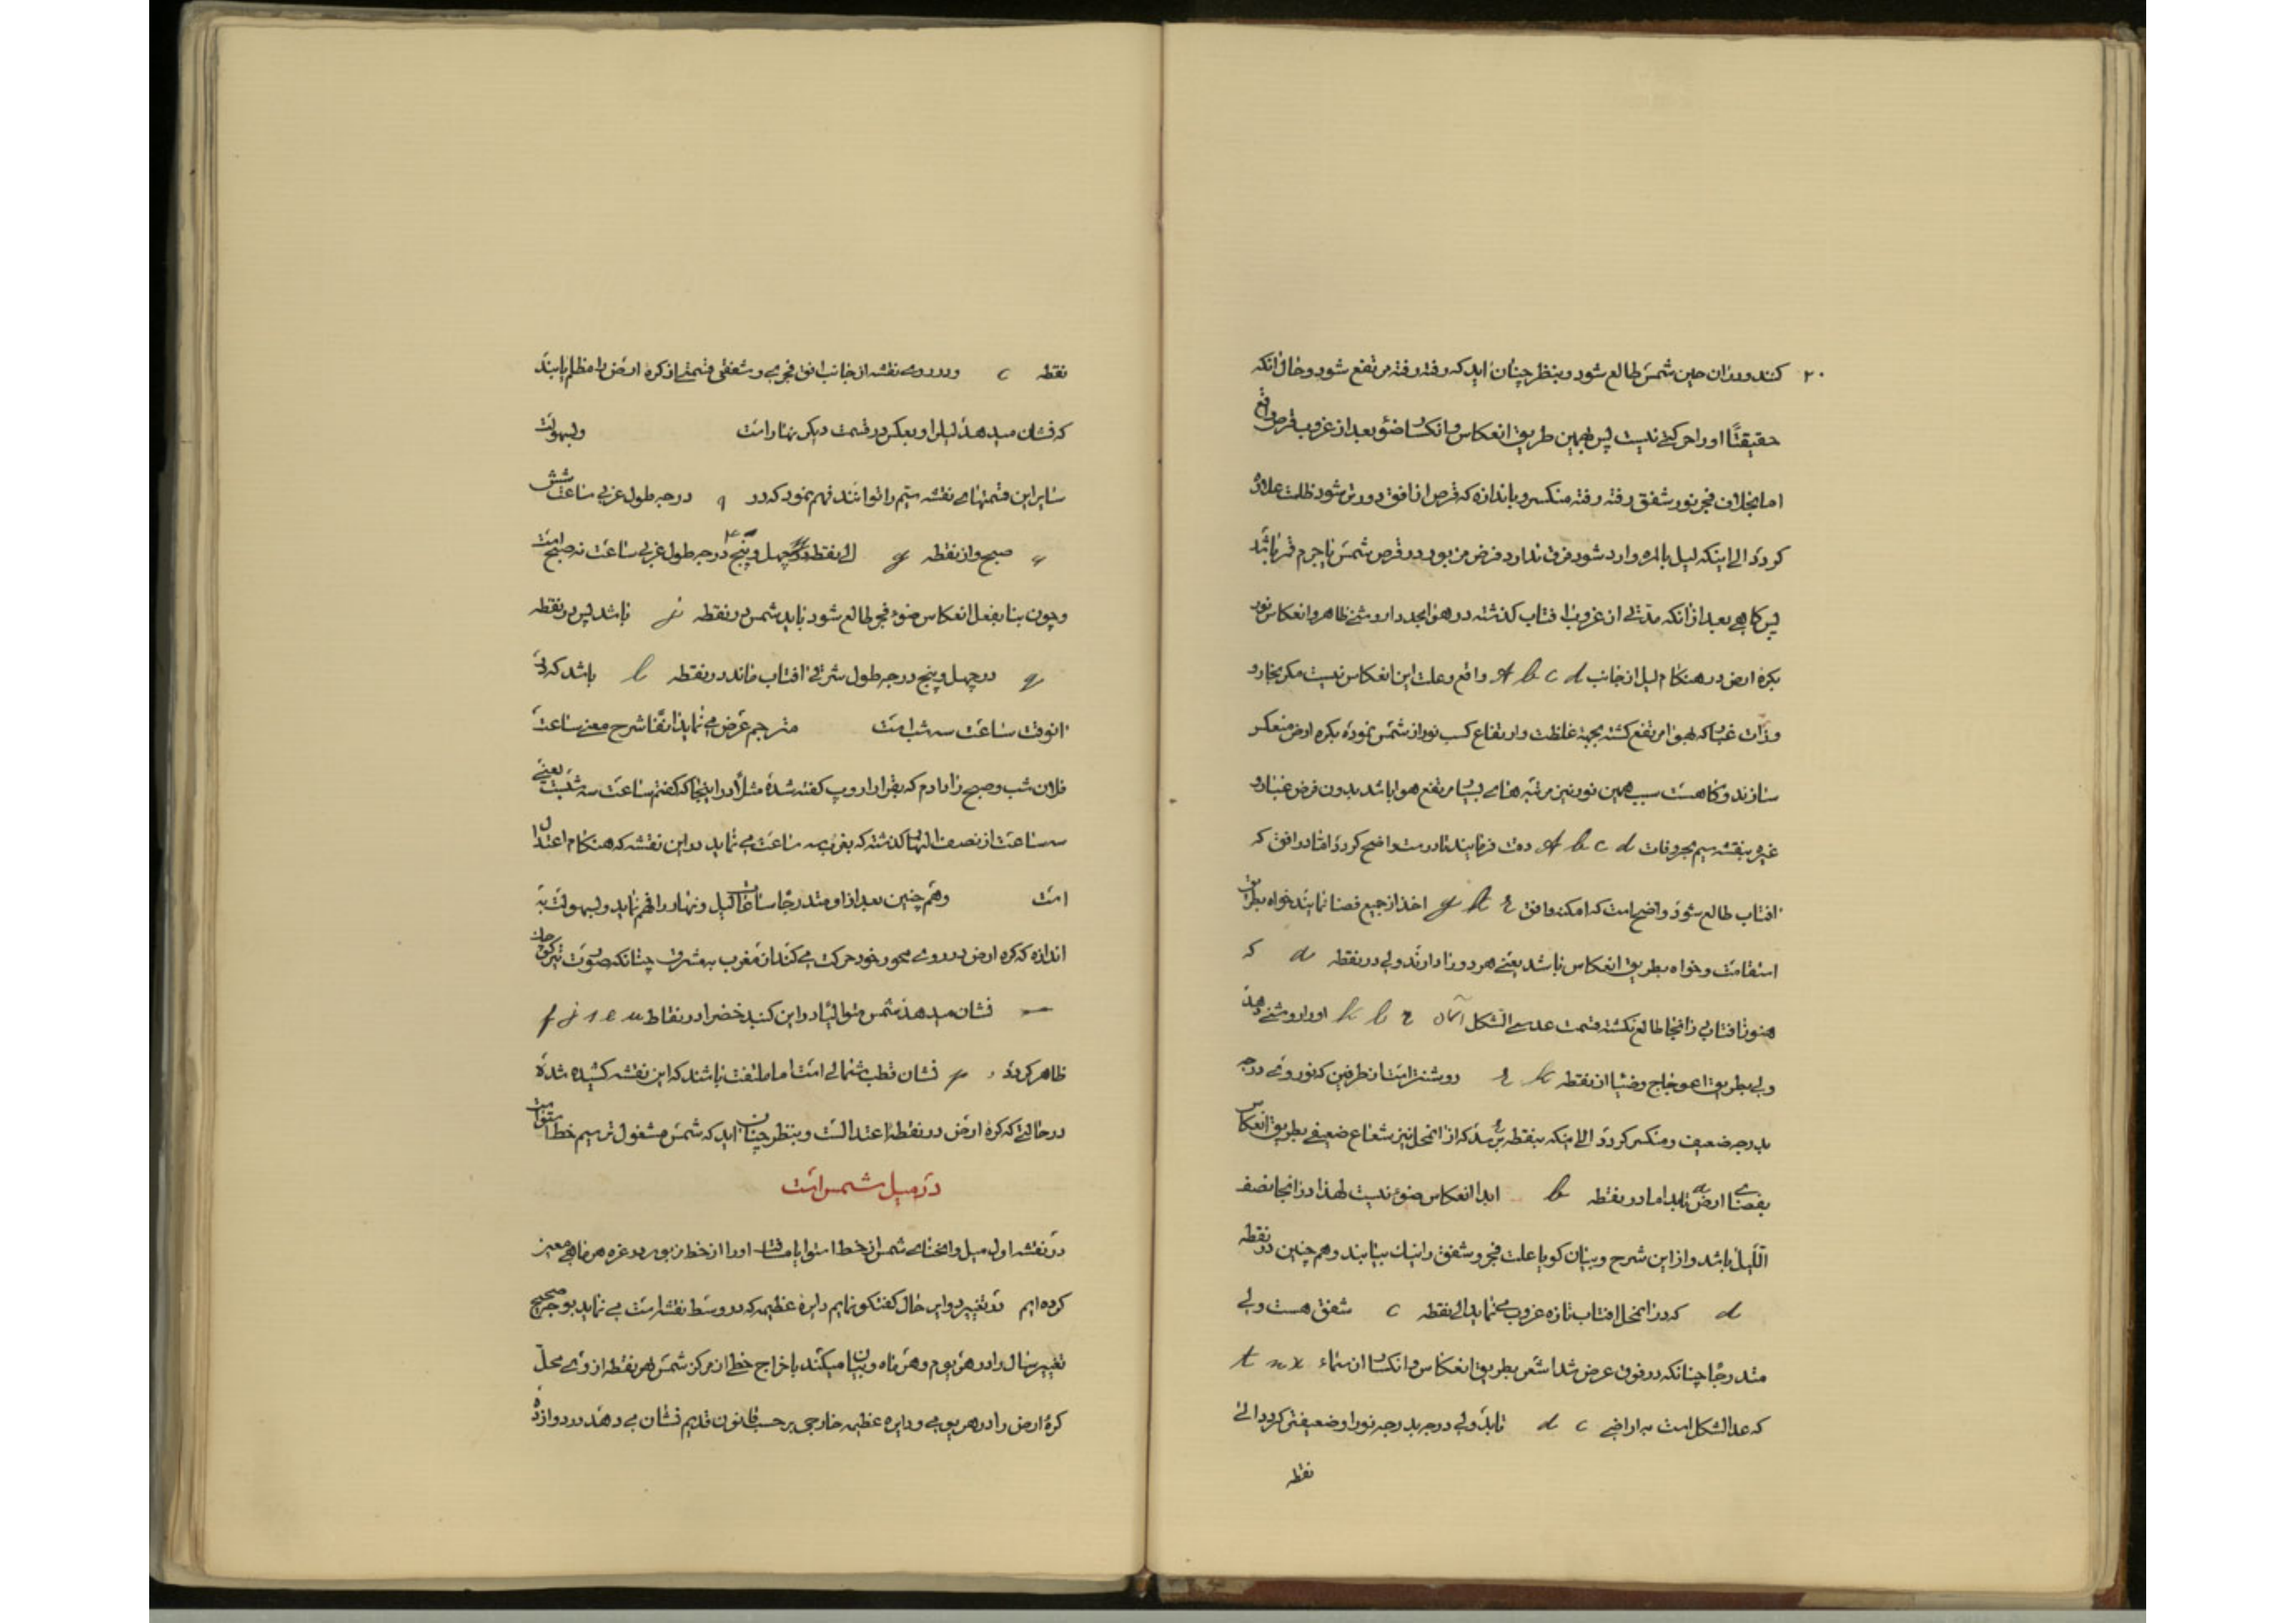 ۲۰ کند و در آن حین شمس طالع شود و بنظر چنان اید که رفته رفته مرتفع شود و حال آنکه
حقیقتاً او را حرکتی نیست پس بهمین طریق انعکاس و انکسار ضوء بعد از غروب قرص واقع
اما بخلاف فجر نور شفق رفته رفته منکسر و باندازه که قرص از افق دورتر شود ظلمت علاوه
کردد الی اینکه لیل بالمره وارد شود فرق ندارد فرض مزبور در قرص شمس یا جرم قمر باشد
پس کاهی بعد از آنکه مدتی از غروب افتاب کذشته در هوا مجدداً روشنی ظاهر و انعکاس نور
بکره ارض در هنکام لیل از جانب A b c d واقع و علت این انعکاس نیست مکر بخار و
وذرات غبار که بهوا مرتفع کشته بجهة غلظت و ارتفاع کسب نور از شمس نموده بکره ارض منعکس
سازند و کاه هست سبب همین نور نیز مرتبه های بسیار مرتفع هوا باشد بدون فرض غبار و
غیره بنقشه سیم بحروفات A b c d دقت فرمایند تا درست واضح کردد افتاب در افق که
افتاب طالع شود واضح است که امکنه وافق g h r اخذ از جمیع فضا نمایند خواه بطریق
استقامت و خواه بطریق انعکاس باشد یعنی هر دو را دارند ولی در نقطه a که
هنوز افتاب در آنجا طالع نکشته قسمت عدسی الشکل آسمان k l r او را روشنی دهد
ولی بطریق اعوجاج و ضیا از نقطه r k روشنتر است از طرفین که نور وی درجه
بدرجه ضعیف و منکسر کردد الی اینکه بنقطه برسد که از آنمحل نیز شعاع ضعیفی بطریق انعکاس
بفضای ارض تابد اما در نقطه b ابدا انعکاس ضوء نیست لهذا در آنجا نصف
اللیل باشد و از این شرح و بیان کویا علت فجر و شفق را نیک بیابند و هم چنین در نقطه
d که در آنمحل افتاب تازه غروب می نماید الی نقطه c شفق هست ولی
متدرجاً چنانکه در فوق عرض شد اشعه بطریق انعکاس و انکسار از سماء t u x
که عدسی الشکل است به اراضی d c تابد ولی درجه بدرجه نور او ضعیفتر کردد الی
نقطه
نقطه c و در روی نقشه از جانب افق فجری و شفقی قسمتی از کره ارض را مظلم یابند
که نشان میدهد لیل را و بعکس در قسمت دیکر نهار است و بسهولت
سایر این قسمتهای نقشه سیم را توانند فهم نمود که در ۹ درجه طول غربی ساعت شش
صبح و از نقطه g الی نقطه چهل و پنج درجه طول غربی ساعت نه صبح است
و چون بنا بفعل انعکاس ضوء فجر طالع شود باید شمس در نقطه j باشد پس در نقطه
g در چهل و پنج درجه طول شرقی افتاب ماند در نقطه l باشد که در
انوقت ساعت سه شب است مترجم عرض می نماید انفا شرح معنی ساعت
فلان شب و صبح را دادم که بقرار اروپ کفته شده مثلاً در اینجا که کفتم ساعت سه شب است یعنی
سه ساعت از نصف النهار کذشته که بغروب سه ساعت می نماید در این نقشه که هنکام اعتدال
است وهم چنین بعد از او متدرجاً ساعات لیل و نهار را فهم نماید و بسهولت به
اندازه که کره ارض در روی محور خود حرکت می کند از مغرب به مشرق چنانکه صورت تیر کوچک
نشان میدهد شمس متوالیاً در این کنبد خضرا در نقاط f j s e u
ظاهر کردد p نشان قطب شمالی است اما ملتفت باشند که این نقشه کشیده شده
در حالتی که کره ارض در نقطه اعتدال است و بنظر چنان اید که شمس مشغول ترسیم خط استوا است
در میل شمس است
در نقشه اول میل و انحنای شمس از خط استوا یا مسافت او را از خط مزبور در غره هر ماهی معین
کرده ایم در تغییر دو این حال کفتکو نمایم دایره عظیمه که در وسط نقشه است می نماید بوجه صحیح
تغییر سال را در هر یوم و هر ماه و بیان میکند باخراج خطی از مرکز شمس بهر نقطه از روی محل
کره ارض را در هر یومی و دایره عظیمه خارجی بر حسب قانون قدیم نشان می دهد در دوازده